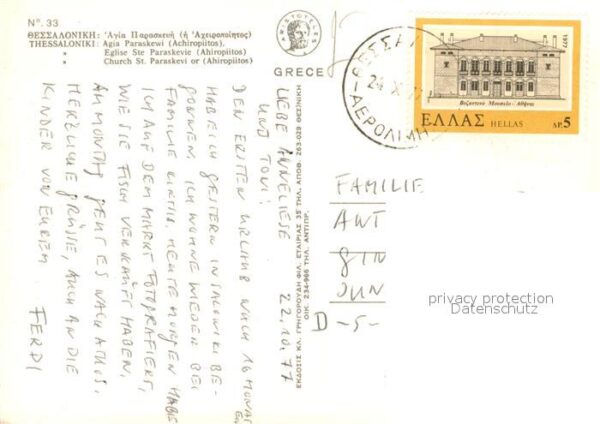 Nº. 33
ΘΕΣΣΑΛΟΝΙΚΗ: Ἁγία Παρασκευή (ἡ Ἀχειροποίητος)
THESSALONIKI: Agia Paraskewi (Achiropiitos)
" Eglise Ste Paraskewie (Ahiropiitos)
" Church St. Paraskevi or (Ahiropiitos)
ARISTOTELES
GREECE
22.10.77
LIEBE ANNELIESE
UND TONI!
DEN ERSTEN URLAUB NACH 16 MONATEN
HABE ICH GESTERN IN SALONIKI BE-
GONNEN. ICH WOHNE WIEDER BEI
FAMILIE HEUTE MORGEN HABE
ICH AUF DEM MARKT FOTOGRAFIERT,
WIE SIE FISCH VERKAUFT HABEN,
AM MONTAG GEHT ES NACH ATHOS.
HERZLICHE GRÜSSE, AUCH AN DIE
KINDER VON EUREM
FERDI
ΕΚΔΟΣΙΣ ΚΛ. ΓΡΗΓΟΡΟΥΔΗ ΦΙΛ. ΕΤΑΙΡΙΑΣ 35 ΤΗΛ. ΑΠΟΘ. 263-029 ΘΕΣ/ΝΙΚΗ
ΟΙΚ. 234-986 ΤΗΛ. ΑΝΤΙΠΡ.
ΑΕΡΟΛΙΜΗΝ
1977
Βυζαντινό Μουσείο - Ἀθήνα
ΕΛΛΑΣ HELLAS ΔΡ. 5
FAMILIE
D -5-
privacy protection
Datenschutz